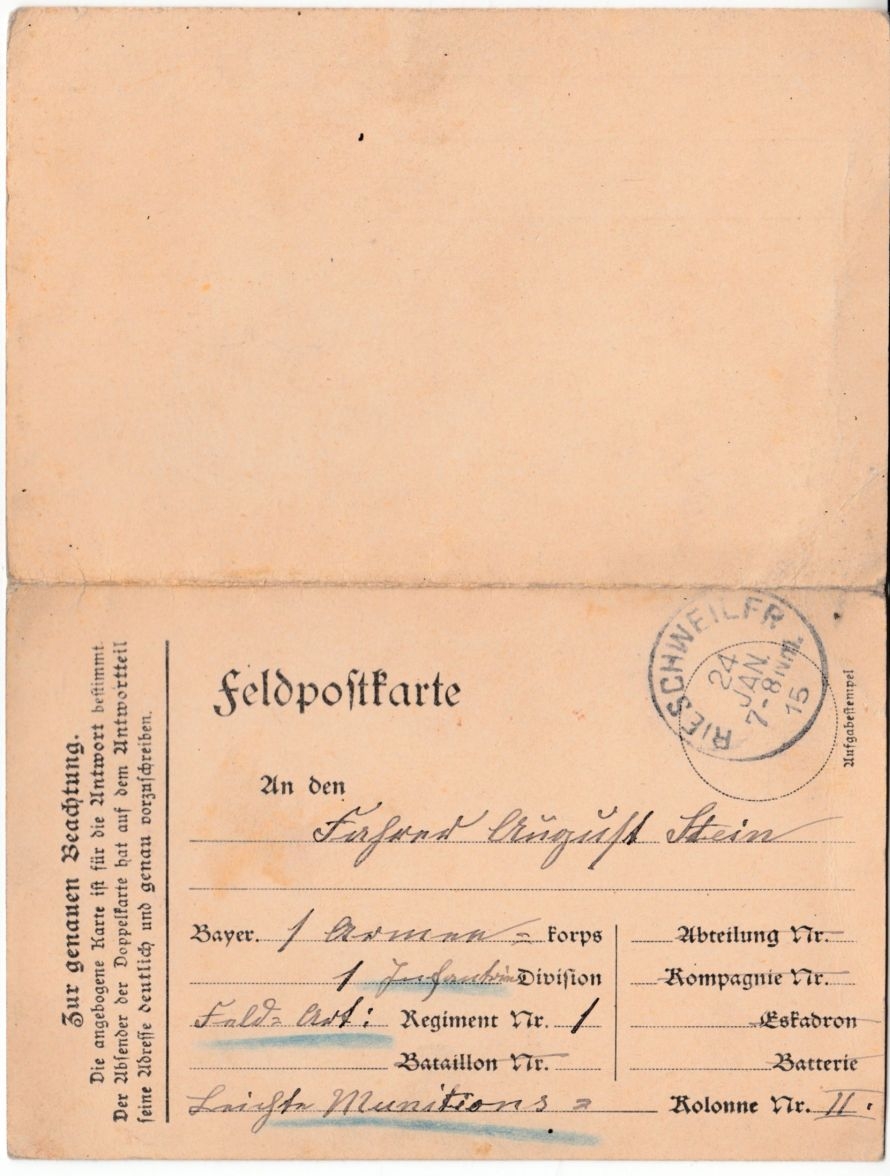 Zur genauen Beachtung.
Die angebogene Karte ist für die Antwort bestimmt.
Der Absender der Doppelkarte hat auf dem Antwortteil
seine Adresse deutlich und genau vorzuschreiben.
Feldpostkarte
RIESCHWEILER
24
JAN.
7-8 Nm.
15
Aufgabestempel
An den
Fahrer August Stein
Bayer. 1 Armee = korps
1 Infantrie Division
Feld= Art: Regiment Nr. 1
Bataillon Nr.
Leichte Munitions =
Abteilung Nr.
Kompagnie Nr.
Eskadron
Batterie
Kolonne Nr. II.